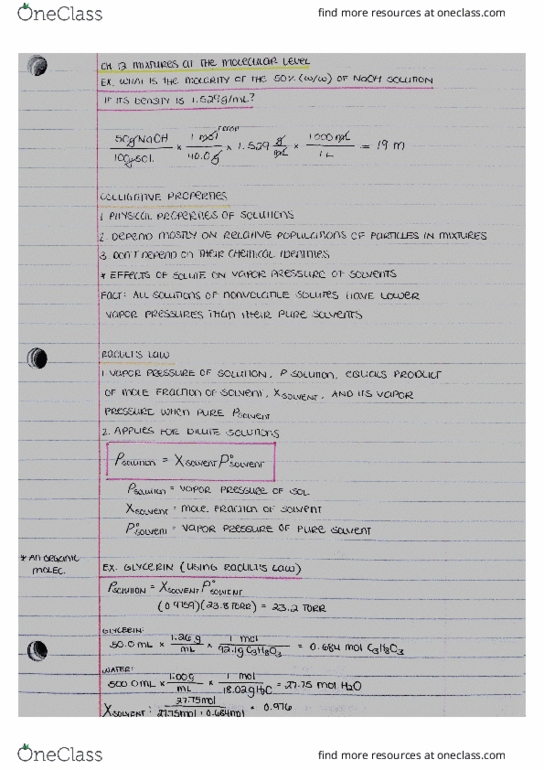 OneClass find more resources at oneclass.com
CH 13 MIXTURES at THE MOLECULAR LEVEL
EX. WHAT IS THE MOLARITY OF THE 50% (W/W) OF NaOH SOLUTION
IF ITS DENSITY IS 1.529 g/mL?
50g NaOH / 100g sol. × 1 mol / 40.0g × 1.529 g/mL × 1000 mL / 1 L = 19 M
COLLIGATIVE PROPERTIES
1. PHYSICAL PROPERTIES OF SOLUTIONS
2. DEPEND MOSTLY ON RELATIVE POPULATIONS OF PARTICLES IN MIXTURES
3. DON'T DEPEND ON THEIR CHEMICAL IDENTITIES
* EFFECTS OF SOLUTE ON VAPOR PRESSURE OF SOLVENTS
FACT: ALL SOLUTIONS OF NONVOLATILE SOLUTES HAVE LOWER
VAPOR PRESSURES THAN THEIR PURE SOLVENTS
RAOULT'S LAW
1. VAPOR PRESSURE OF SOLUTION, P SOLUTION, EQUALS PRODUCT
OF MOLE FRACTION OF SOLVENT, X SOLVENT, AND ITS VAPOR
PRESSURE WHEN PURE P SOLVENT
2. APPLIES FOR DILUTE SOLUTIONS
P SOLUTION = X SOLVENT P° SOLVENT
P SOLUTION = VAPOR PRESSURE OF SOL
X SOLVENT = MOLE FRACTION OF SOLVENT
P° SOLVENT = VAPOR PRESSURE OF PURE SOLVENT
* AN ORGANIC
MOLEC.
EX. GLYCERIN (USING RAOULT'S LAW)
P SOLUTION = X SOLVENT P° SOLVENT
(23.8 TORR) = 23.2 TORR
GLYCERIN:
50.0 mL × 1.26 g / mL × 1 mol / 92.1g C3H8O3 = 0.684 mol C3H8O3
WATER:
500.0 mL × 1.00g / mL × 1 mol / 18.02g H2O = 27.75 mol H2O
X SOLVENT: 27.75 mol / 27.75 mol + 0.684 mol = 0.976
OneClass find more resources at oneclass.com